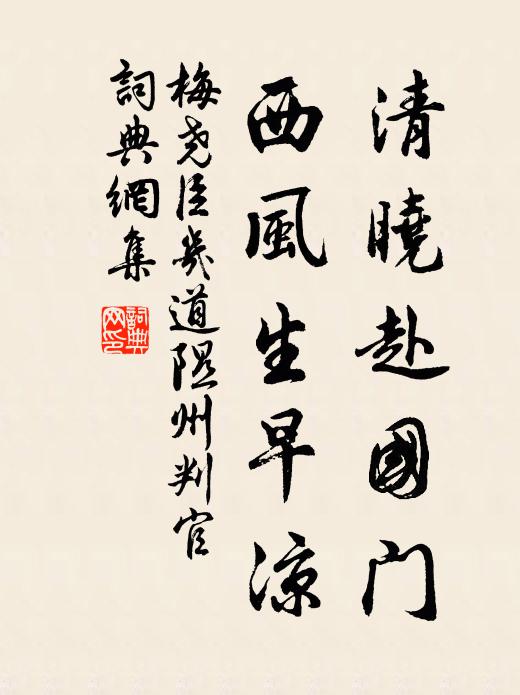 清曉赴國门
西風生早凉
梅尧臣幾道隰州判官
詞典網集
詞典网印